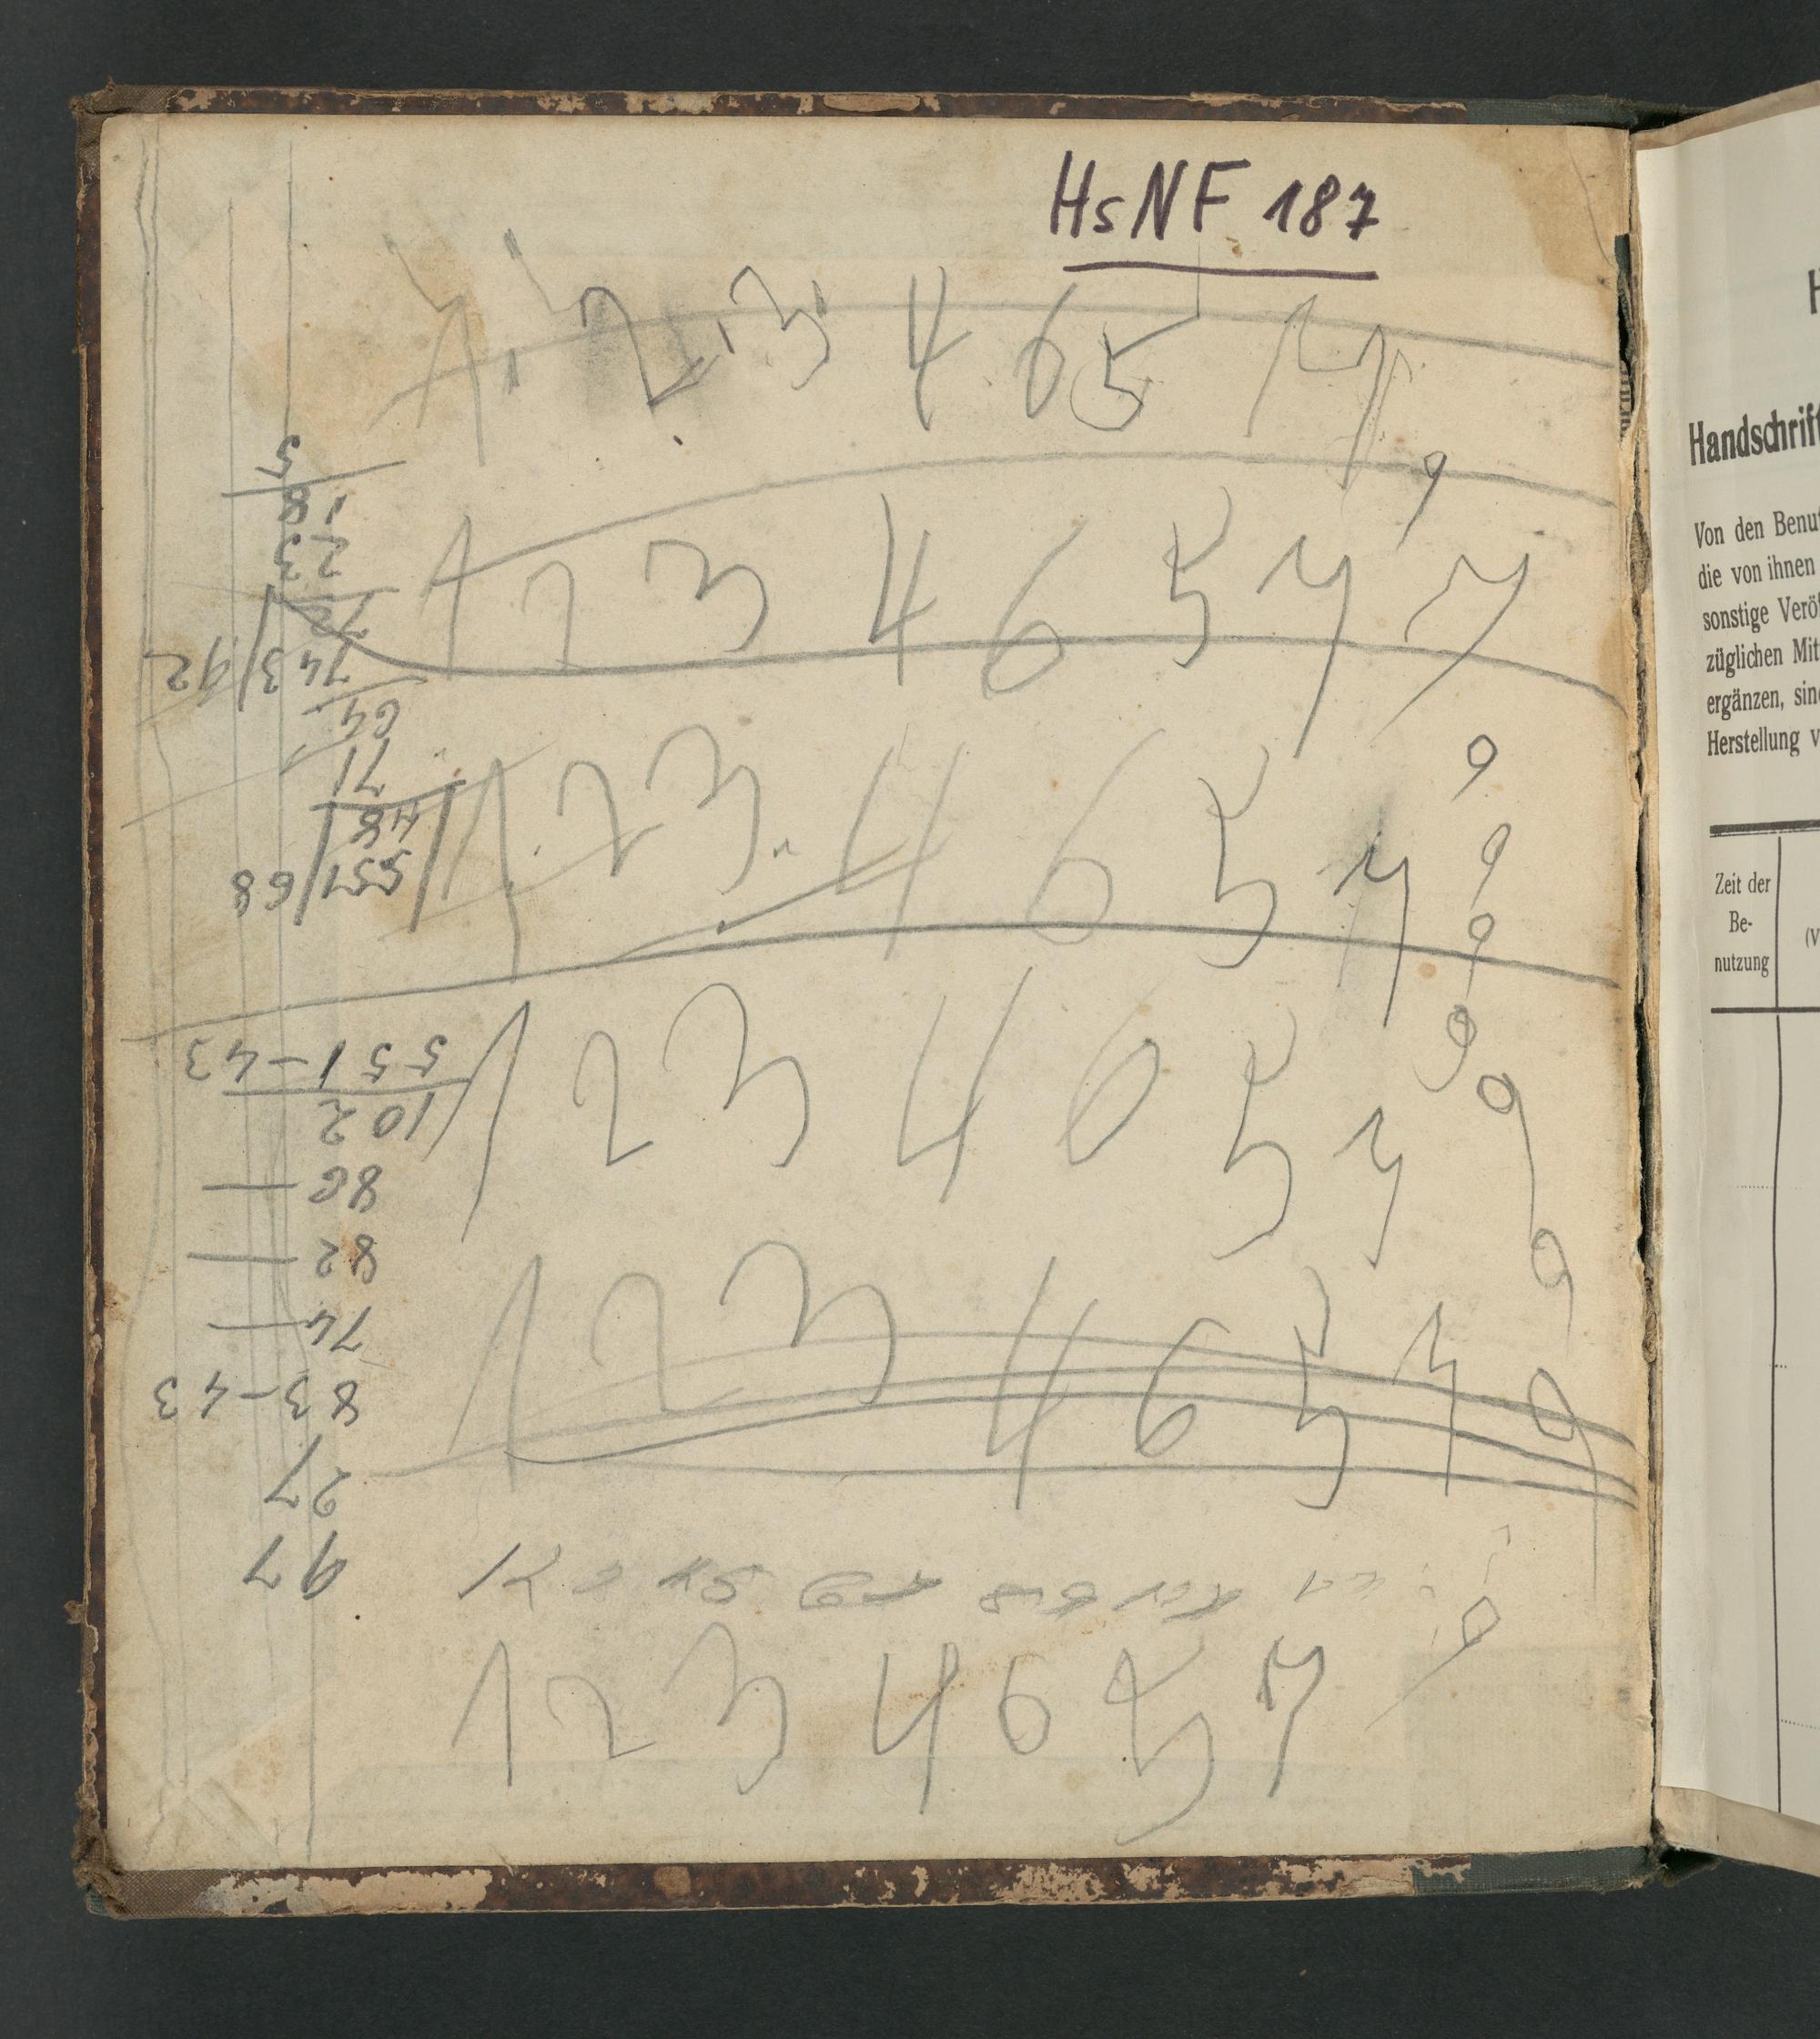 HsNF 187
1 2 3 4 6 5 7
9
1 2 3 4 6 5 7 7
9
1 2 3 4 6 5 7 9
9
1 2 3 4 6 5 7 9
9
9
1 2 3 4 6 5 7 9
9
1 2 3 4 6 5 7
97
27
83-43
74 —
82 —
86 —
102
551-43
551/68
48
71
64
743/92
72
23
18
5
Handschrift
Von den Benu
die von ihnen
sonstige Verö
züglichen Mit
ergänzen, sin
Herstellung v
Zeit der
Be-
nutzung
(V